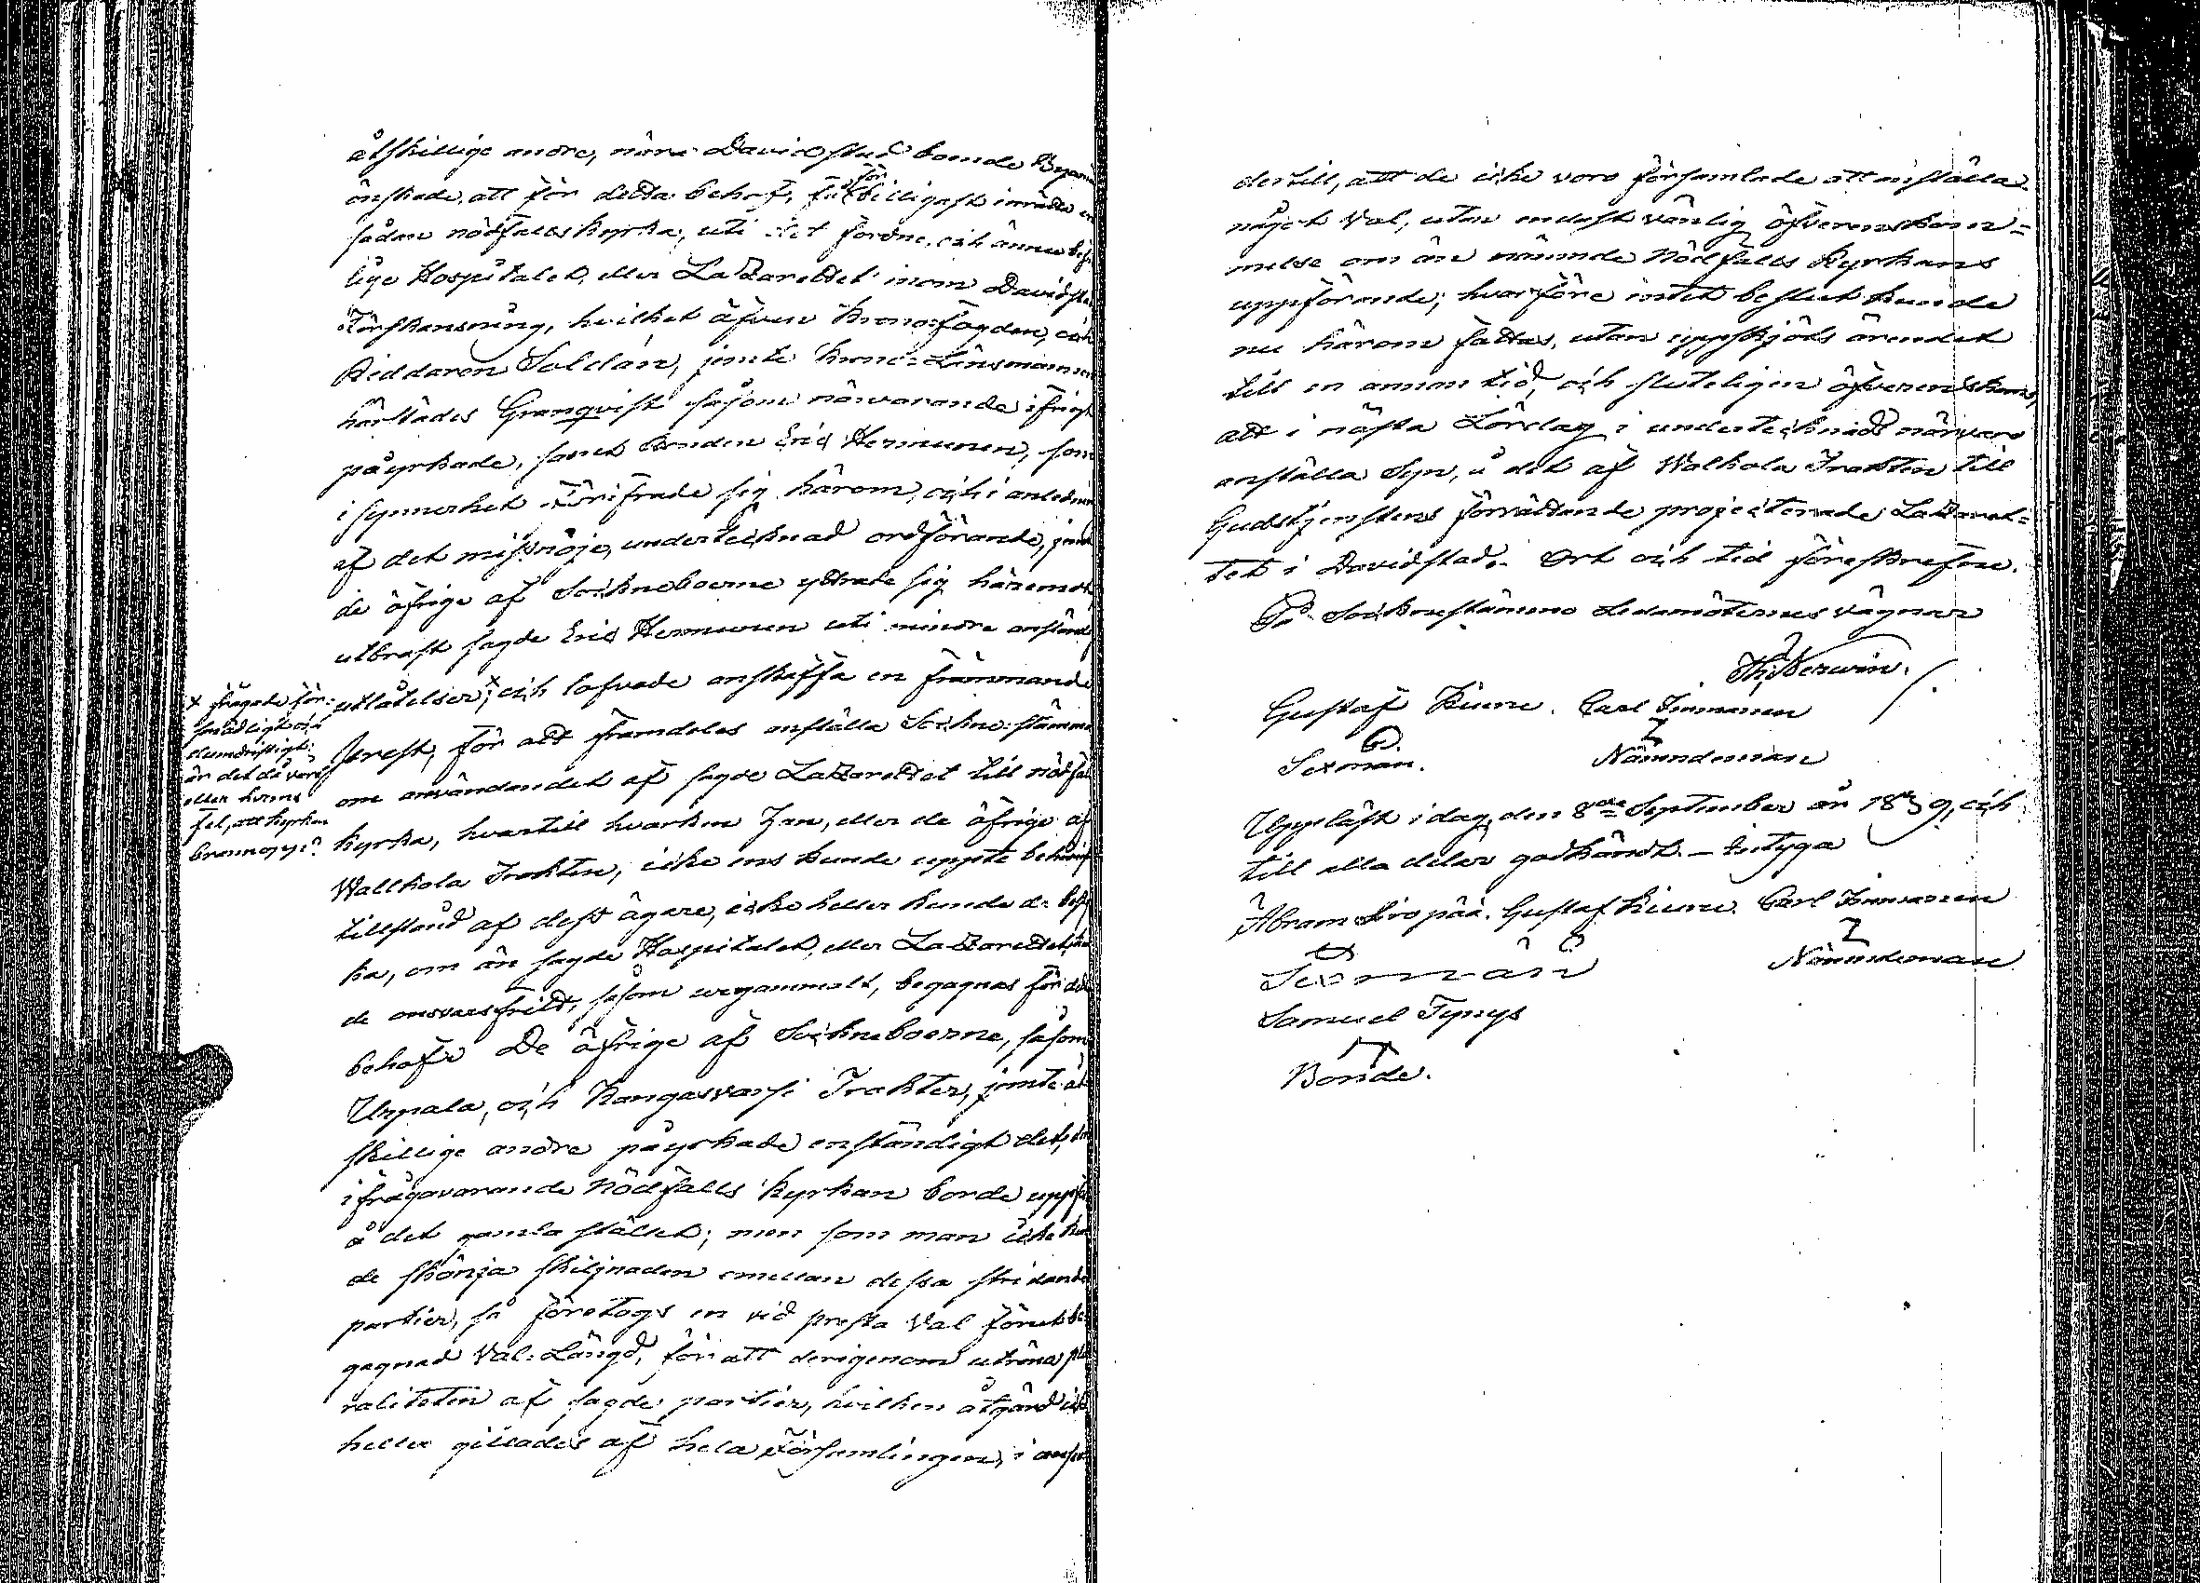 åtskillige andre, nära Davidstad boende
önskade, att för detta behof, för billigast inreda en
sådan nödfallskyrka, uti det fordne, och ännu
lige Hospitalet, eller Lazzarettet inom Davidsta
Förskansning, hvilket äfven Kronofogden, och
Riddaren Soldán, jemte Krono-Länsmannen
härstädes Granqvist såsom närvarande
påyrkade, samt Bonden Eric Hermunen, som
i synnerhet förifrade sig härom, och i anledning
af det missnöje, undertecknad ordförande, jemte
de öfrige af Sockneboerne yttrade sig häremot,
utbrast sagde Eric Hermunen uti mindre anständ
utlåtelser,x och lofvade anskaffa en främmande
x frågade för-
smädligt och
dumdristigt:
är det då vårt
eller hvems
fel, att kyrkan
brann opp?
Prest, för att framdeles anställa Sockne-stämma
om användandet af sagde Lazzarettet till nödfalls
kyrka, hvartill hvarken han, eller de öfrige af
Wallkola Trakten, icke ens kunde uppte
tillstånd af dess ägare, icke heller kunde de
ka, om än sagde Hospitalet, eller Lazzarettet,
de ansvarsfritt, såsom urgammalt, begagnas för
behof. De öfrige af Sockneboerne, såsom
Urpala, och Kangasvarsi Trakter, jemte åt
skillige andre påyrkade enständigt det,
ifrågavarande Nödfalls Kyrkan borde
å det gamla stället; men som man icke kun
de skönja skiljnaden emellan dessa stridande
partier, så företogs en vid presta Val förut be
gagnad Val-Längd, för att derigenom utröna plu
raliteten af sagde partier, hvilken åtgärd icke
heller gillades af hela Församlingen, i anse
dertill, att de icke voro församlade att anställa
något Val, utan endast vänlig öfverenskom=
melse om än nämnde Nödfalls Kyrkans
uppförande; hvarföre intet beslut kunde
nu härom fattas, utan uppskjöts ärendet
till en annan tid, och sluteligen öfverenskoms,
att i nästa Lördag i undertecknads närvaro
anställa Syn, å det af Walkola Trakten till
Gudstjenstens förrättande projecterade Lazzaret=
tet i Davidstad. Ort och tid föreskrefne.
På Sockne stämmo Ledamöternes vägnar
Gustaf Kiuru. Carl Inmanen
Sexman. Nämndeman
Uppläst i dag, den 8de September år 1839, och
till alla delar godkändt. – Intyga
Abram Kiropää. Gustaf Kiuru. Carl Inmanen
Sexmän Nämndeman
Samuel Tynys
Bonde.